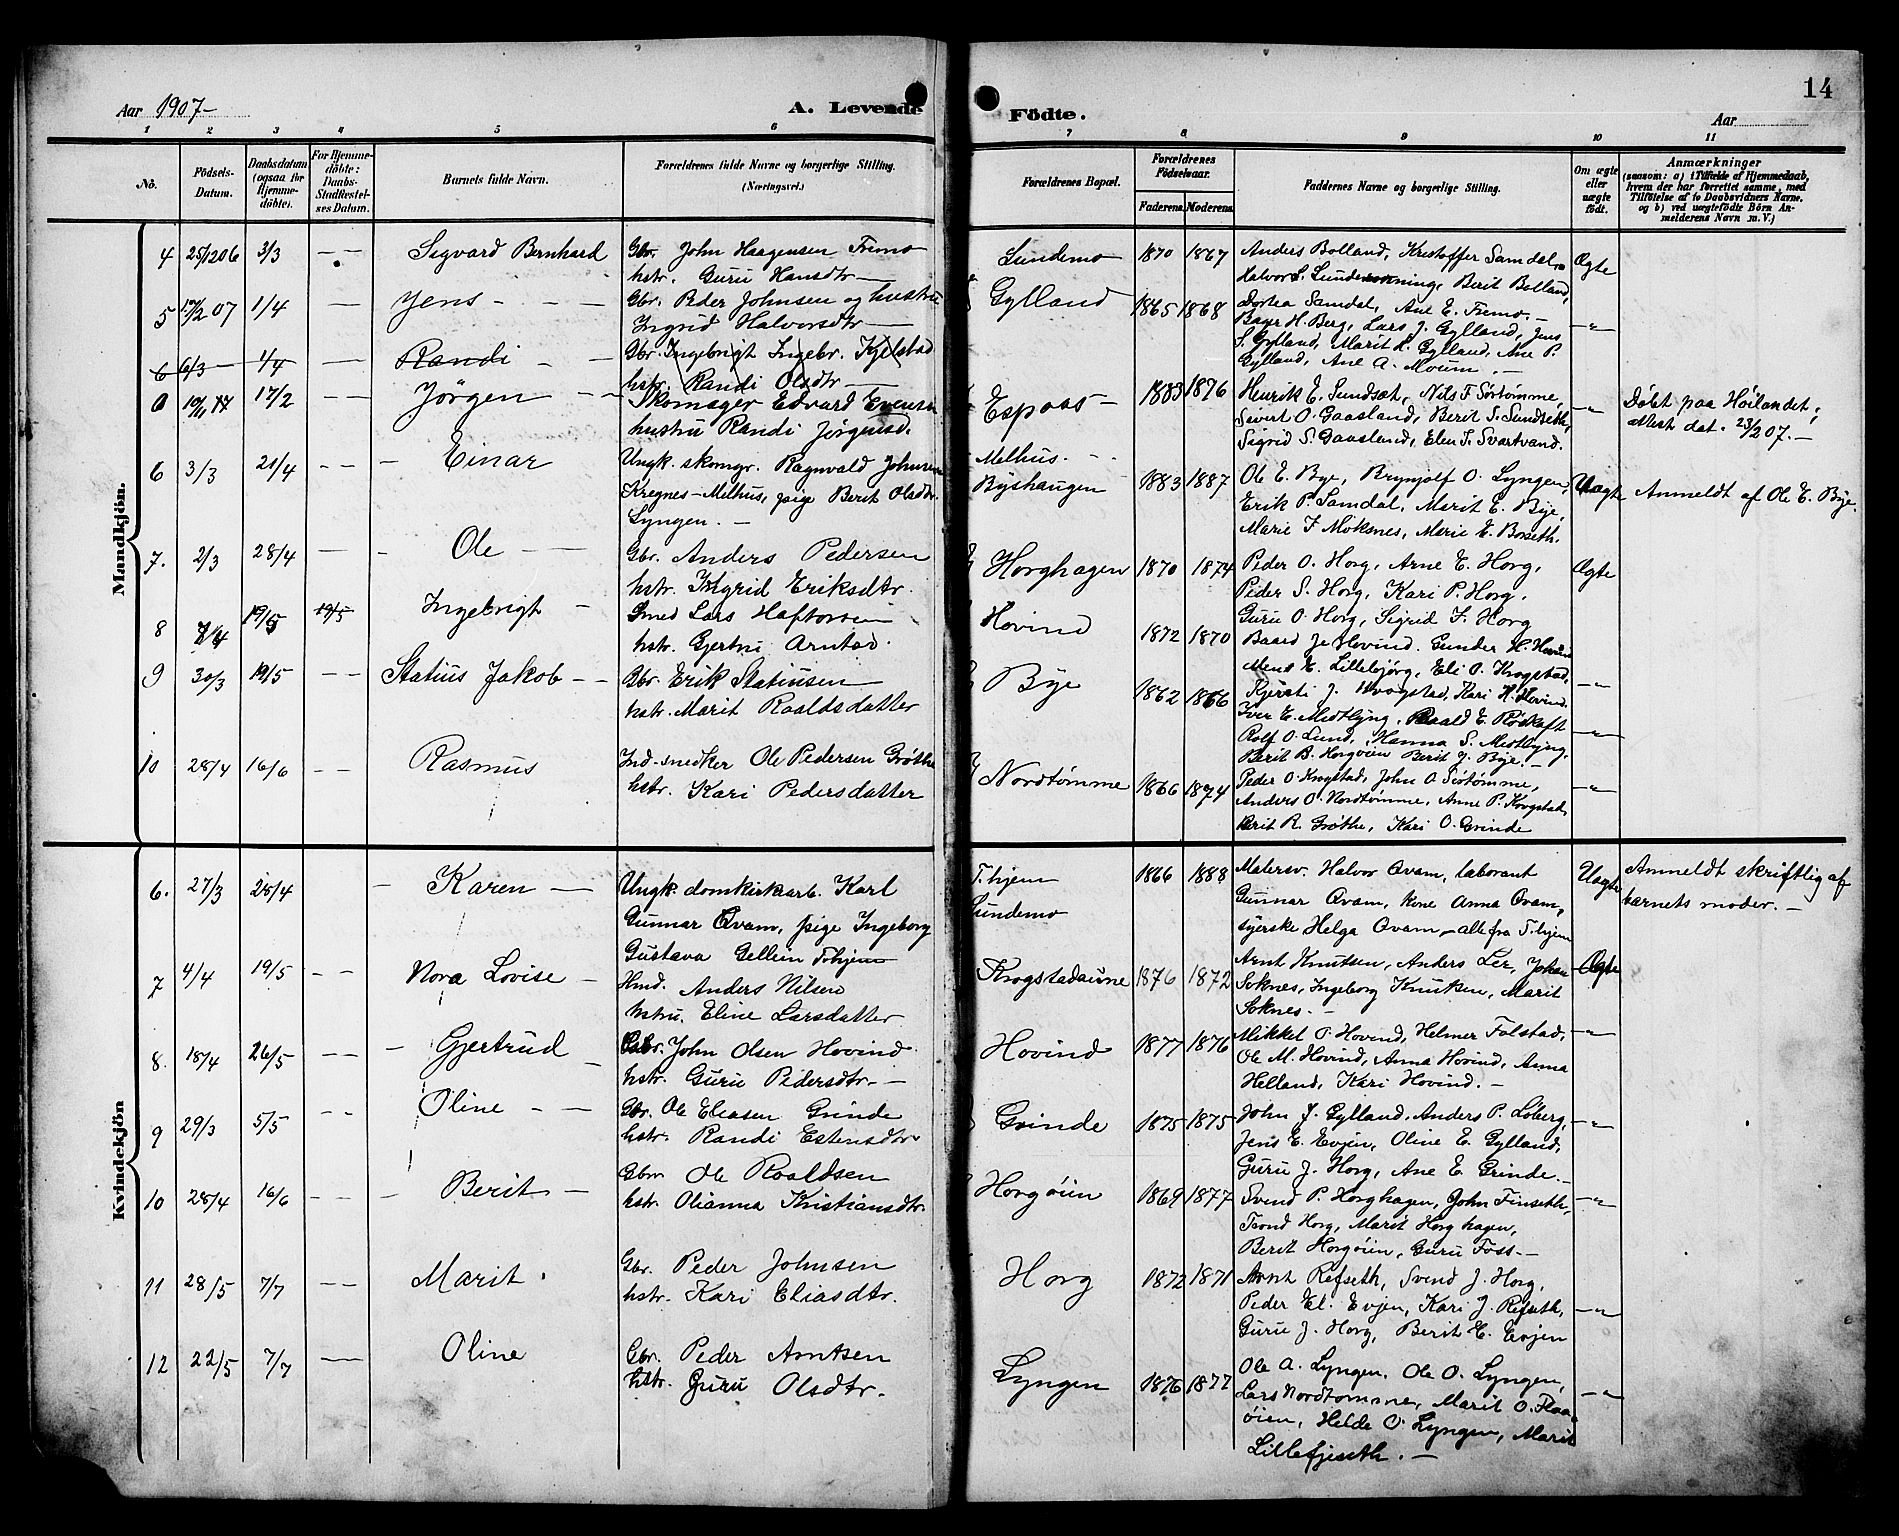 14
Aar 1907-
A. Levende Födte.
Aar
1 2 3 4 5 6 7 8 9 10 11
No.
Födsels-Datum.
Daabsdatum (ogsaa for Hjemme-döbte).
For Hjemme-döbte: Daabs-Stadfæstel-ses Datum.
Barnets fulde Navn.
Forældrenes fulde Navne og borgerlige Stilling. (Næringsvei.)
Forældrenes Bopæl.
Forældrenes Födselsaar.
Faderens. Moderens.
Faddernes Navne og borgerlige Stilling.
Om ægte eller uægte födt.
Anmærkninger
(saasom: a) i Tilfælde af Hjemmedaab,
hvem der har forrettet samme, med
Tilföielse af to Daabsvidners Navne.
og b) ved uægtefödte Börn An-
melderens Navn m. V.)
Mandkjön.
4 25/12 06 3/3 — Sigvard Bernhard
Gbr. John Haagensen Fremo
hstr. Guru Hansdtr —
Sundemo 1870 1867
Anders Bolland, Kristoffer Samdal,
Halvor S. Berit Bolland,
Dortea Samdal, Ane E. Fremo. —
Ægte
5 17/2 07 1/4 — Jens - - -
Gbr. Peder Johnsen og hustru
Ingrid Halvorsdtr —
Gylland 1865 1868
Baar H. Berg, Lars J. Gylland, Jens
S. Gylland, Marit L. Gylland, Ane P.
Gylland, Ane A. Moum. —
—"—
6 6/3 4/4 — Randi -
Gbr. Ingebrigt Ingebr. Kjelstad
hstr. Randi Olsdtr —
17/2 — Jörgen —
Skomager Edvard Evensen
hustru Randi Jörgensd.
Espaas - 1883 1876
Henrik E. Sundsæt, Nils F. Sörtömme,
Sivert O. Gaasland, Berit S. Sundseth,
Sigrid S. Gaasland, Elen S. Svartvand.
—"—
Döbt paa Höilandet;
Attest dat. 23/2 07. —
6 3/3 21/4 - - - Einar
Ungk. skomgr. Ragnvald Johnsen
Kregnes-Melhus, pige Berit Olsdtr.
Lyngen. —
Melhus. - -
Byshaugen 1883 1887
Ole E. Bye, Brynjolf O. Lyngen,
Erik P. Samdal, Marit E. Bye,
Marie F. Moksnes, Marie E. Borseth.
Uægte
Anmeldt af Ole E. Bye.
7. 2/3 28/4 — - Ole —
Gbr. Anders Pedersen
hstr. Ingrid Eriksdtr.
Horghagen 1870 1874
Peder O. Horg, Arne E. Horg,
Peder S. Horg, Kari P. Horg,
Guru O. Horg, Sigrid F. Horg
Ægte
8 7/4 19/5 19/5 Ingebrigt -
Smed Lars Haftorsen
hstr. Gjertru Arntsd.
Hovind 1872 1870
Baard J. Hovind. Gunder H. Hovind
E. Lillebjörg, Eli O. Krogstad,
Kjersti J. Krogstad, Kari H. Hovind.
—"—
9 30/3 19/5 - - Statius Jakob - -
Gbr. Erik Statiusen
hstr. Marit Roaldsdatter
Bye 1862 1866
Iver E. Midtlyng, Roald E. Röskaft
Rolf O. Lund, Hanna S. Midtlyng.
Berit B. Horgöien Berit J. Bye. —
—"—
10 28/4 16/6 - - Rasmus
Ind.-snedker Ole Pedersen Gröthe
hstr. Kari Pedersdatter
Nordtömme 1866 1874
Peder O. Krogstad, John O. Sörtömme,
Anders O. Nordtömme, Anne P. Krogstad,
Berit R. Gröthe, Kari O. Grinde
—"—
Kvindekjön
6. 27/3 25/4 - Karen —
Ungk. domkirkearb. Karl
Gunnar Qvam, pige Ingeborg
Gustava Gellein T.hjem
T.hjem
Sundemo 1866 1888
Malersv. Halvor Qvam, laborant
Gunnar Qvam, kone Anna Qvam,
syerske Helga Qvam, — alle fra T.hjem
Uægte
Anmeldt skriftlig af
barnets moder. —
7 4/4 19/5 - - Nora Lovise —
Hmd. Anders Nilsen
hstru. Eline Larsdatter
Krogstadaune 1876 1872
Arnt Knutsen, Anders Ler, Johan
Soknes, Ingeborg Knutsen, Marit
Soknes. —
Ægte
8. 18/4 26/5 - - - Gjertrud —
Gbr. John Olsen Hovind
hstr. Guru Pedersdtr. —
Hovind 1877 1876
Mikkel O. Hovind, Helmer Folstad,
Ole M. Hovind, Anna Hovind, Anna
Helland, Kari Hovind. —
—"—
9 29/3 5/5 - - Oline - -
Gbr. Ole Eliasen Grinde
hstr. Randi Estensdtr.
Grinde 1875 1875
John J. Gylland, Anders P. Löberg,
Jens E. Evjen, Oline E. Gylland,
Guru J. Horg, Ane E. Grinde. —
—"—
10 28/4 16/6 - - - Berit —
Gbr. Ole Roaldsen
hstr. Olianna Kristiansdtr.
Horgöien 1869 1877
Svend P. Horghagen, John Finseth,
Trond Horg, Marit Horghagen,
Berit Horgöien, Guru Foss. —
—"—
11 28/5 7/7 - - Marit.
Gbr. Peder Johnsen
hstr. Kari Eliasdtr.
Horg 1872 1871
Arnt Refseth, Svend J. Horg,
Peder El. Evjen, Kari J. Refseth,
Guru J. Horg, Berit E. Evjen
—"—
12 22/5 7/7 — Oline
Gbr. Peder Arntsen
hstr. Guru Olsdtr.
Lyngen 1876 1877
Ole A. Lyngen, Ole O. Lyngen,
Lars Nordtömme, Marit O. Floa-
öien, Helde O. Lyngen, Marit
Lillefjeseth. —
—"—